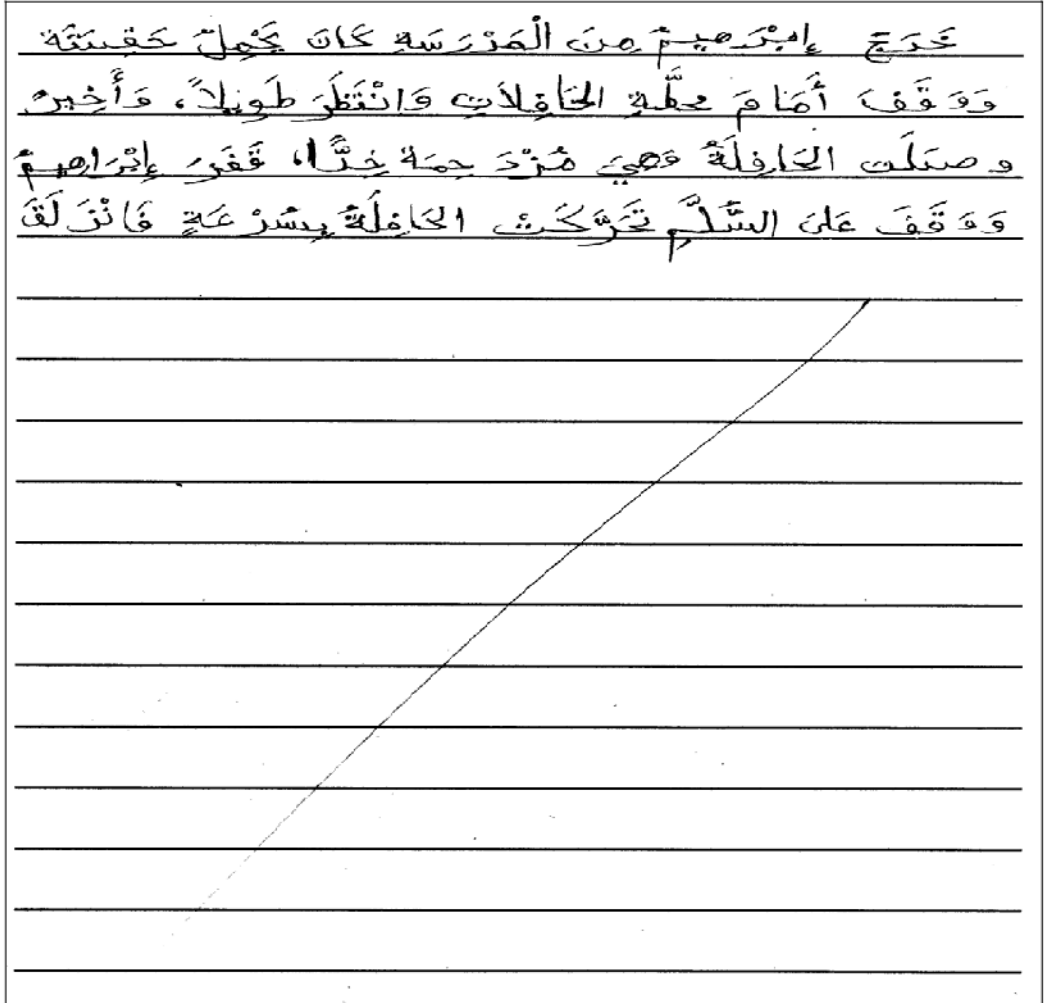 خَرَجَ إِبْرَهِيمُ مِنَ الْمَدْرَسَةِ كَانَ يَحْمِلُ حَقِيبَتَهُ
وَوَقَفَ أَمَامَ محطَّةِ الحَافِلَاتِ وَانْتَظَرَ طَوِيلاً، وَأَخِيرً
وصلَت الحَافِلَةُ وَهِيَ مُزْدَحِمَة جِدًّا، قَفَزَ إِبْرَاهِيمُ
وَوَقَفَ عَلَى السُّلَّمِ تَحَرَّكَتْ الحَافِلَةُ بِسُرْعَةٍ فَانْزَلَقَ